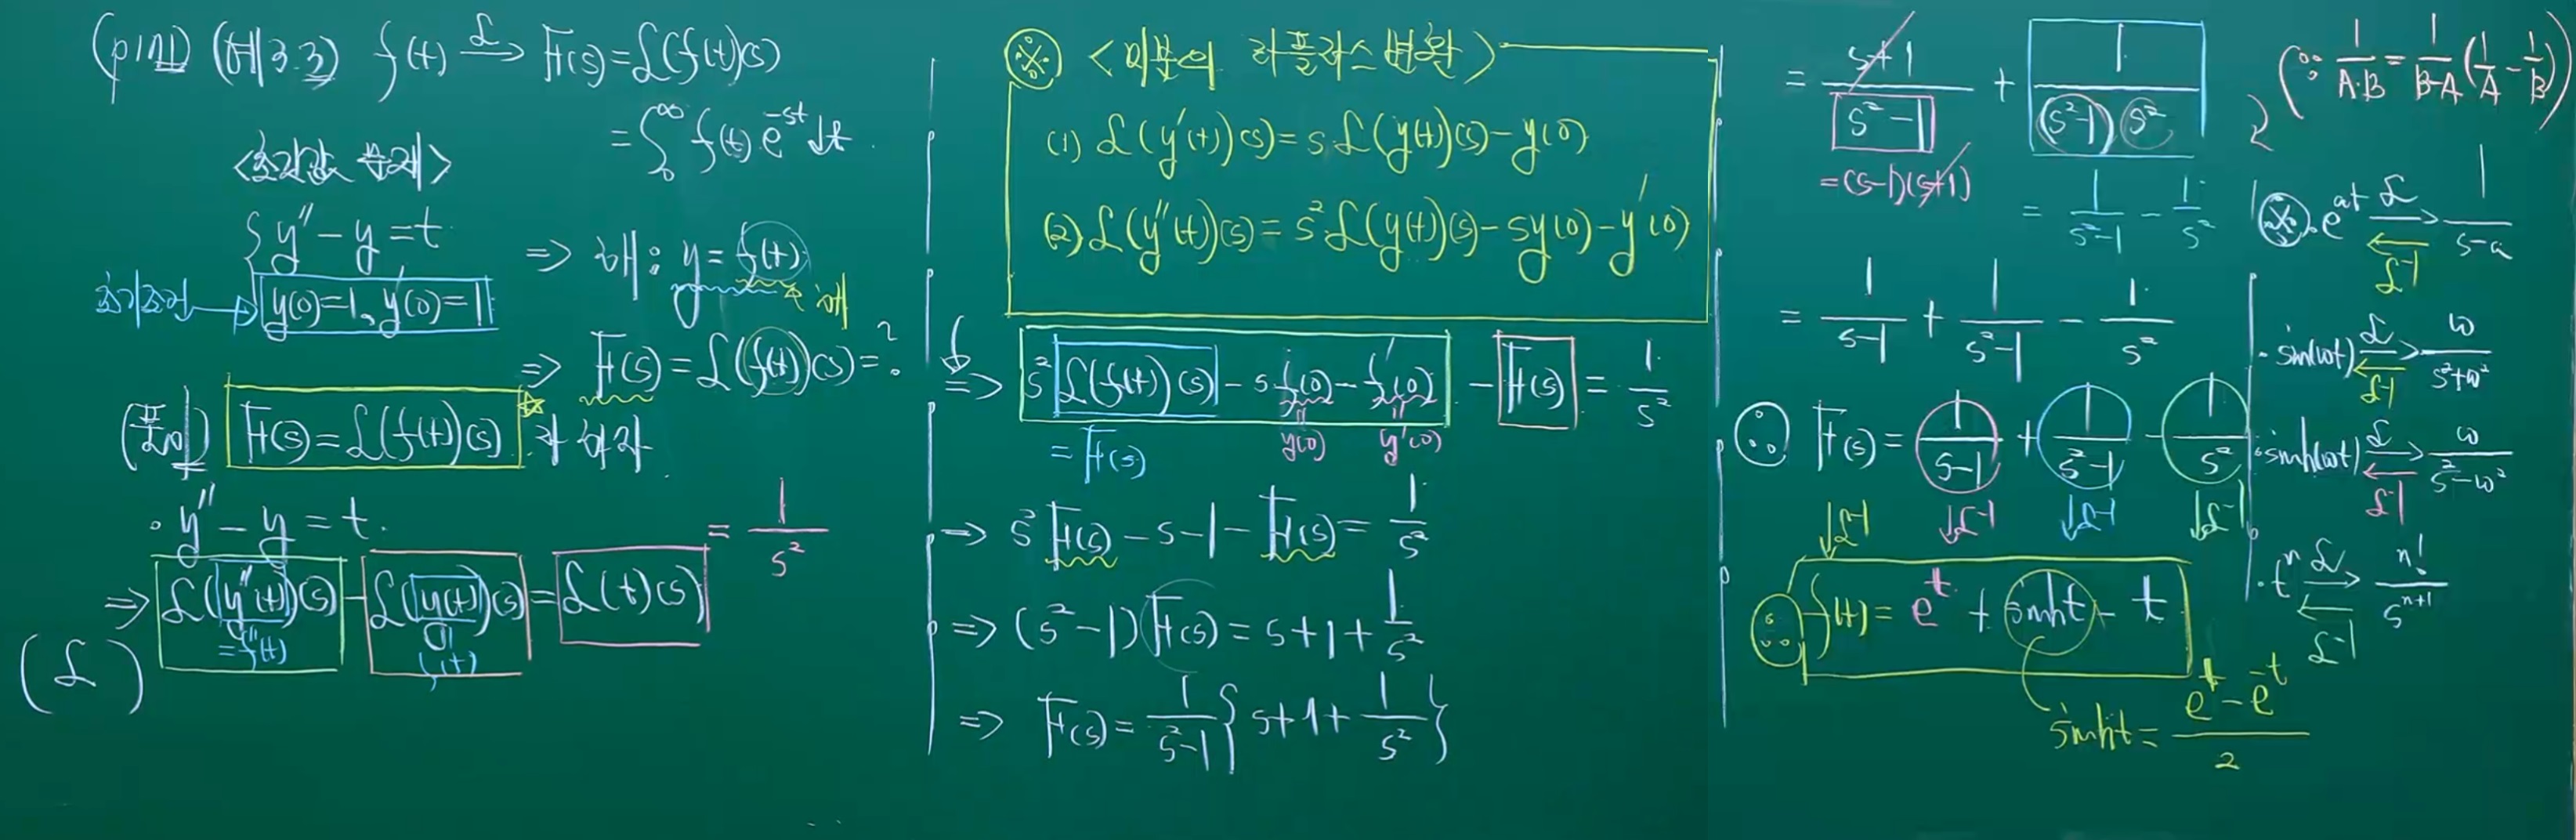 (p171) (예제3.3) f(t) ℒ→ F(s)=ℒ(f(t))(s)
=∫₀^∞ f(t)·e^{-st}dt.
<초기값 문제>
{ y''-y=t
초기조건→ y(0)=1, y'(0)=1
⇒ 해: y=f(t) ← 해
⇒ F(s)=ℒ(f(t))(s)=?
(풀이) F(s)=ℒ(f(t))(s) ☆ 라 하자.
· y''-y=t.
(ℒ) ⇒ ℒ(y''(t))(s) - ℒ(y(t))(s) = ℒ(t)(s) = 1/s²
=f''(t) f(t)
※ <미분의 라플라스 변환>
(1) ℒ(y'(t))(s)=s·ℒ(y(t))(s)-y(0)
(2) ℒ(y''(t))(s)=s²·ℒ(y(t))(s)-sy(0)-y'(0)
⇒ s²ℒ(f(t))(s) - s·f(0) - f'(0) - F(s) = 1/s²
=F(s) y(0) y'(0)
⇒ s²F(s)-s-1-F(s)=1/s²
⇒ (s²-1)F(s)=s+1+1/s²
⇒ F(s)=1/(s²-1){s+1+1/s²}
= (s+1)/(s²-1) + 1/((s²-1)s²) (∵ 1/(A·B) = 1/(B-A)(1/A - 1/B))
=(s-1)(s+1) = 1/(s²-1) - 1/s²
= 1/(s-1) + 1/(s²-1) - 1/s²
∴ F(s) = 1/(s-1) + 1/(s²-1) - 1/s²
↓ℒ⁻¹ ↓ℒ⁻¹ ↓ℒ⁻¹ ↓ℒ⁻¹
∴ f(t)= e^t + sinht - t
sinht = (e^t - e^{-t})/2
※. e^{at} ℒ⇄ℒ⁻¹ 1/(s-a)
· sin(ωt) ℒ⇄ℒ⁻¹ ω/(s²+ω²)
· sinh(ωt) ℒ⇄ℒ⁻¹ ω/(s²-ω²)
· tⁿ ℒ⇄ℒ⁻¹ n!/s^{n+1}